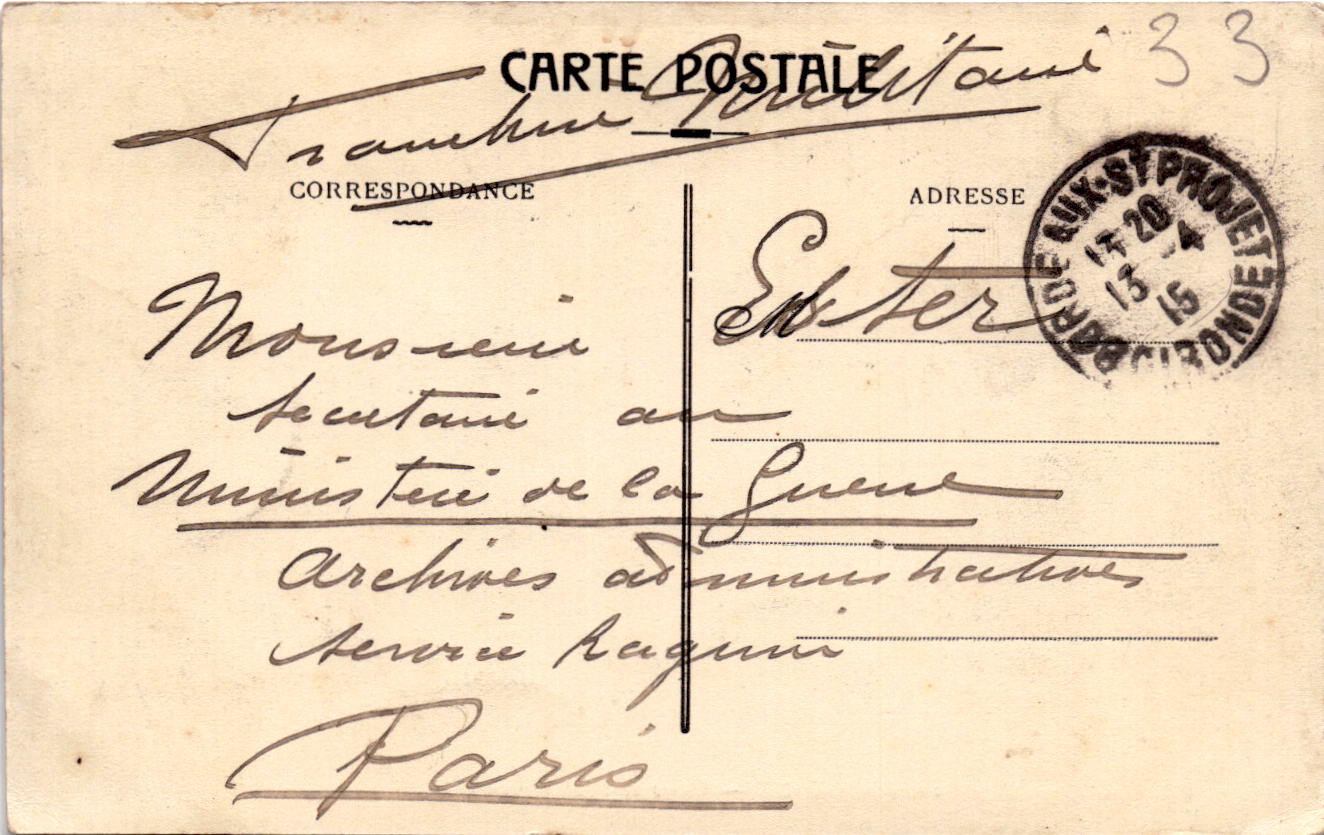 33
CARTE POSTALE
Franchise Militaire
CORRESPONDANCE
ADRESSE
BORDEAUX-ST PROJET
GIRONDE
17 20
13 -4
15
Monsieur
Secretaire au
Ministère de la Guerre
Archives administratives
Service
Paris